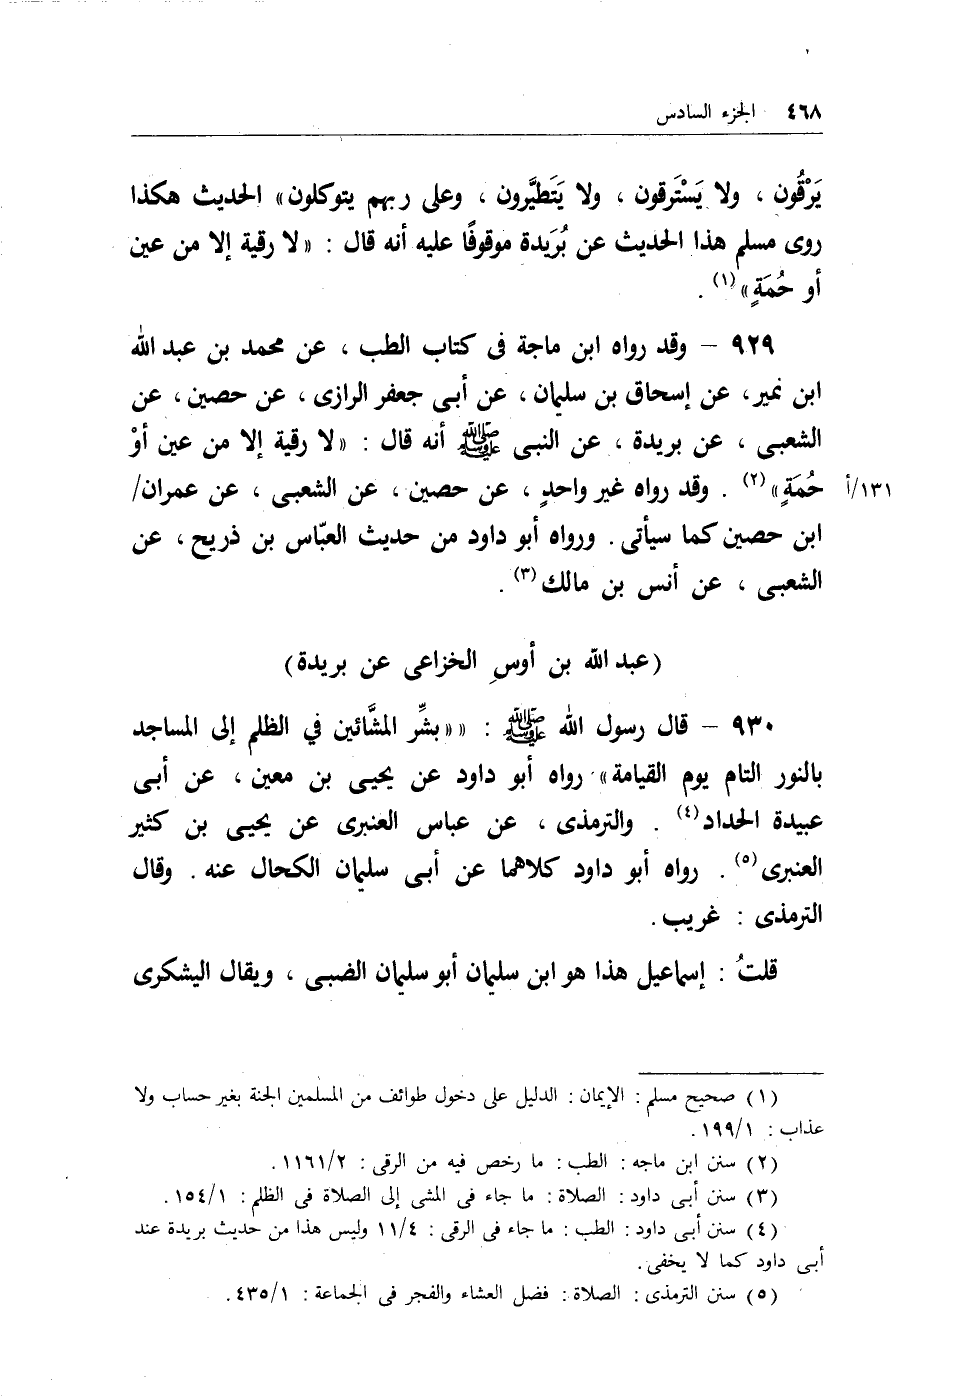 ٤٦٨ الجزء السادس
يَرْقُون ، ولا يَسْتَرقون ، ولا يَتَطيَّرون ، وعلى ربهم يتوكلون» الحديث هكذا
روى مسلم هذا الحديث عن بُرَيدة موقوفًا عليه أنه قال : «لا رقية إلا من عين
أو حُمَةٍ»(١) .
٩٢٩ – وقد رواه ابن ماجة فى كتاب الطب ، عن محمد بن عبد الله
ابن نمير، عن إسحاق بن سليمان، عن أبى جعفر الرازى ، عن حصين ، عن
الشعبى ، عن بريدة ، عن النبى ﷺ أنه قال : «لا رقية إلا من عين أوْ
حُمَةٍ»(٢) . وقد رواه غير واحدٍ ، عن حصين ، عن الشعبى ، عن عمران/ ١٣١/أ
ابن حصين كما سيأتى . ورواه أبو داود من حديث العبّاس بن ذريح ، عن
الشعبى ، عن أنس بن مالك(٣) .
(عبد الله بن أوسٍ الخزاعى عن بريدة)
٩٣٠ – قال رسول الله ﷺ : ««بشِّر المشَّائين في الظلم إلى المساجد
بالنور التام يوم القيامة» رواه أبو داود عن يحيى بن معين ، عن أبى
عبيدة الحداد(٤) . والترمذى ، عن عباس العنبرى عن يحيى بن كثير
العنبرى(٥) . رواه أبو داود كلاهما عن أبى سليمان الكحال عنه . وقال
الترمذى : غريب .
قلتُ : إسماعيل هذا هو ابن سليمان أبو سليمان الضبى ، ويقال اليشكرى
(١) صحيح مسلم : الإيمان : الدليل على دخول طوائف من المسلمين الجنة بغير حساب ولا
عذاب : ١٩٩/١ .
(٢) سنن ابن ماجه : الطب : ما رخص فيه من الرقى : ١١٦١/٢ .
(٣) سنن أبى داود : الصلاة : ما جاء فى المشى إلى الصلاة فى الظلم : ١٥٤/١ .
(٤) سنن أبى داود : الطب : ما جاء فى الرقى : ١١/٤ وليس هذا من حديث بريدة عند
أبى داود كما لا يخفى .
(٥) سنن الترمذى : الصلاة : فضل العشاء والفجر فى الجماعة : ٤٣٥/١ .